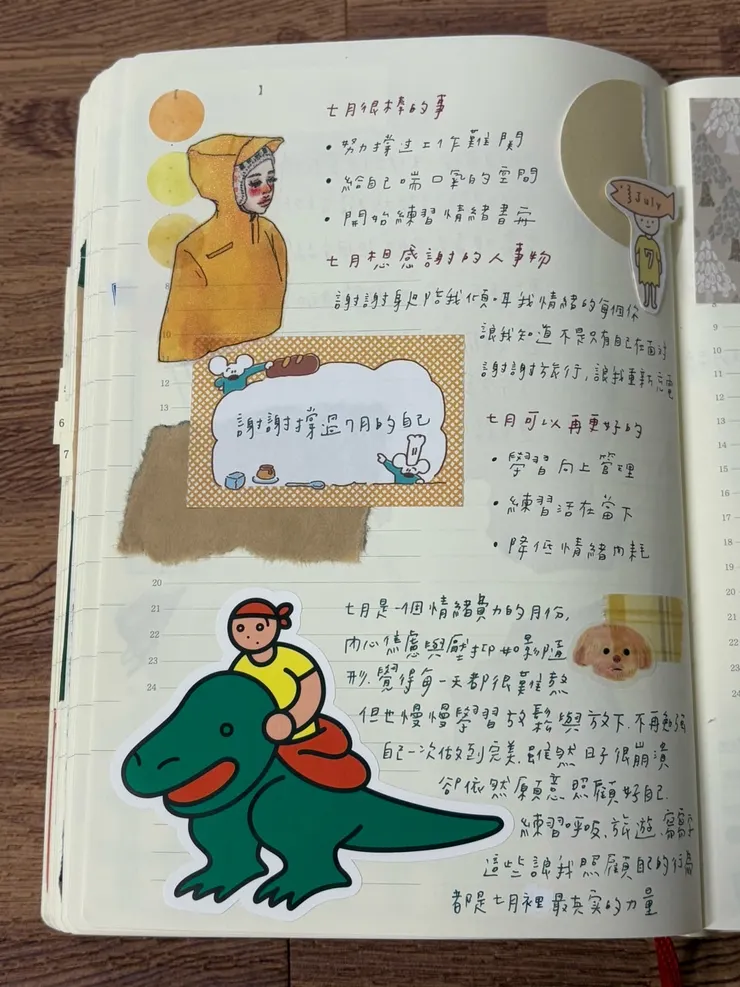 七月很棒的事
• 努力撐過工作難關
• 給自己喘口氣的空間
• 開始練習情緒書寫
七月想感謝的人事物
謝謝身邊陪我傾耳我情緒的每個你
讓我知道不是只有自己在面對
謝謝旅行，讓我重新充電
July
7
謝謝撐過7月的自己
七月可以再更好的
• 學習向上管理
• 練習活在當下
• 降低情緒內耗
七月是一個情緒費力的月份，
內心焦慮與壓抑如影隨
形，覺得每一天都很難熬
但也慢慢學習放鬆與放下，不再勉強
自己一次做到完美，雖然日子很崩潰
卻依然願意照顧好自己
練習呼吸、旅遊、寫字
這些讓我照顧自己的行為
都是七月裡最真實的力量
8
10
12
13
20
21
22
23
24
6
7
9
10
11
12
13